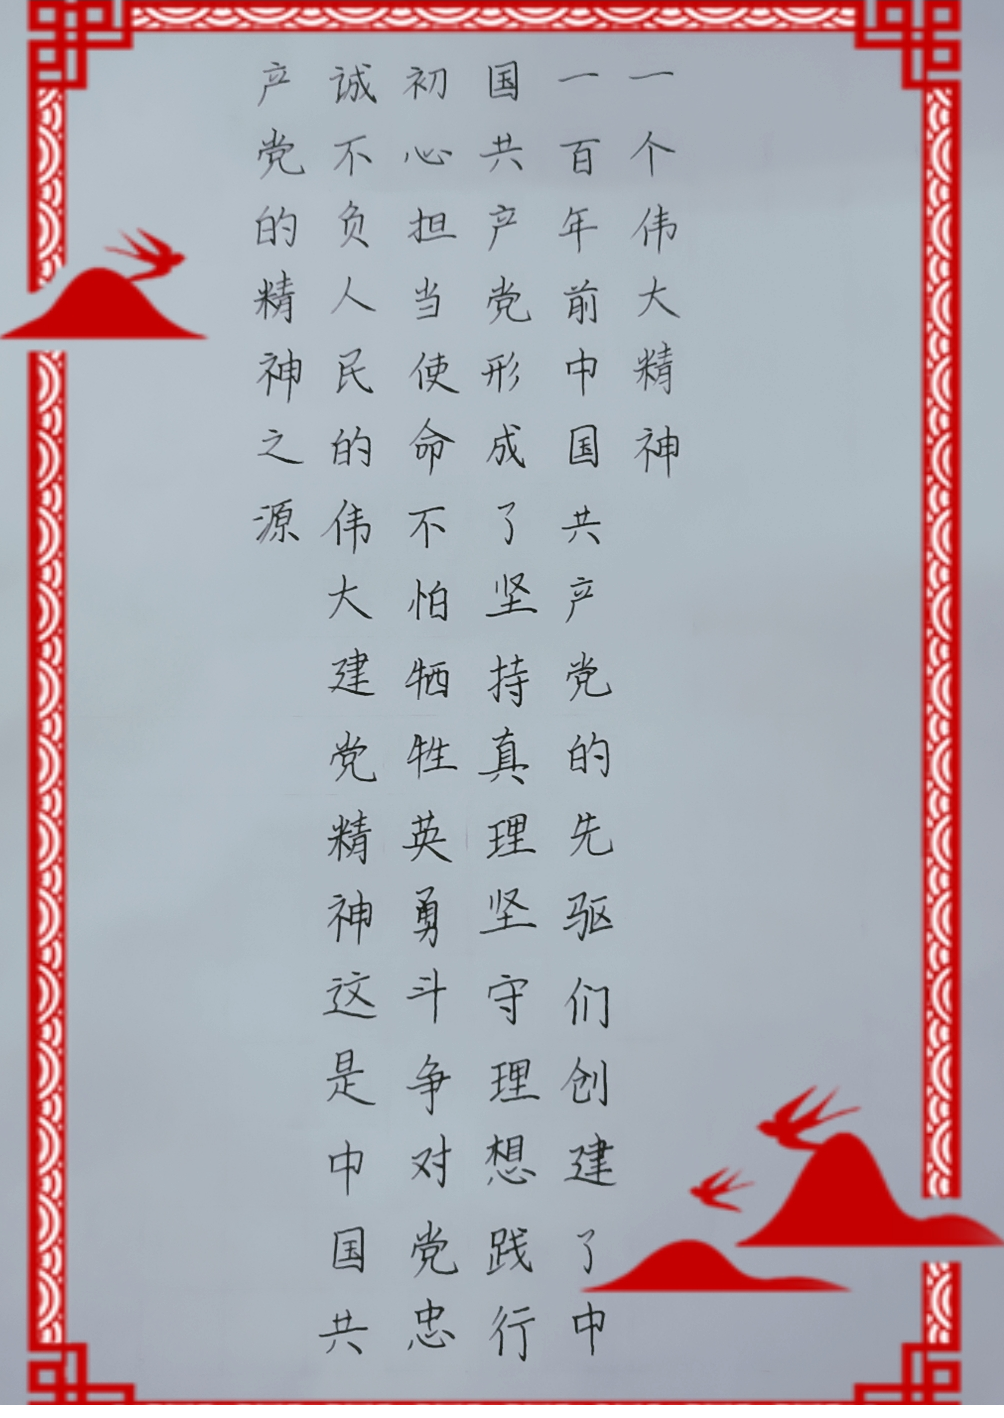 一个伟大精神
一百年前中国共产党的先驱们创建了中
国共产党形成了坚持真理坚守理想践行
初心担当使命不怕牺牲英勇斗争对党忠
诚不负人民的伟大建党精神这是中国共
产党的精神之源